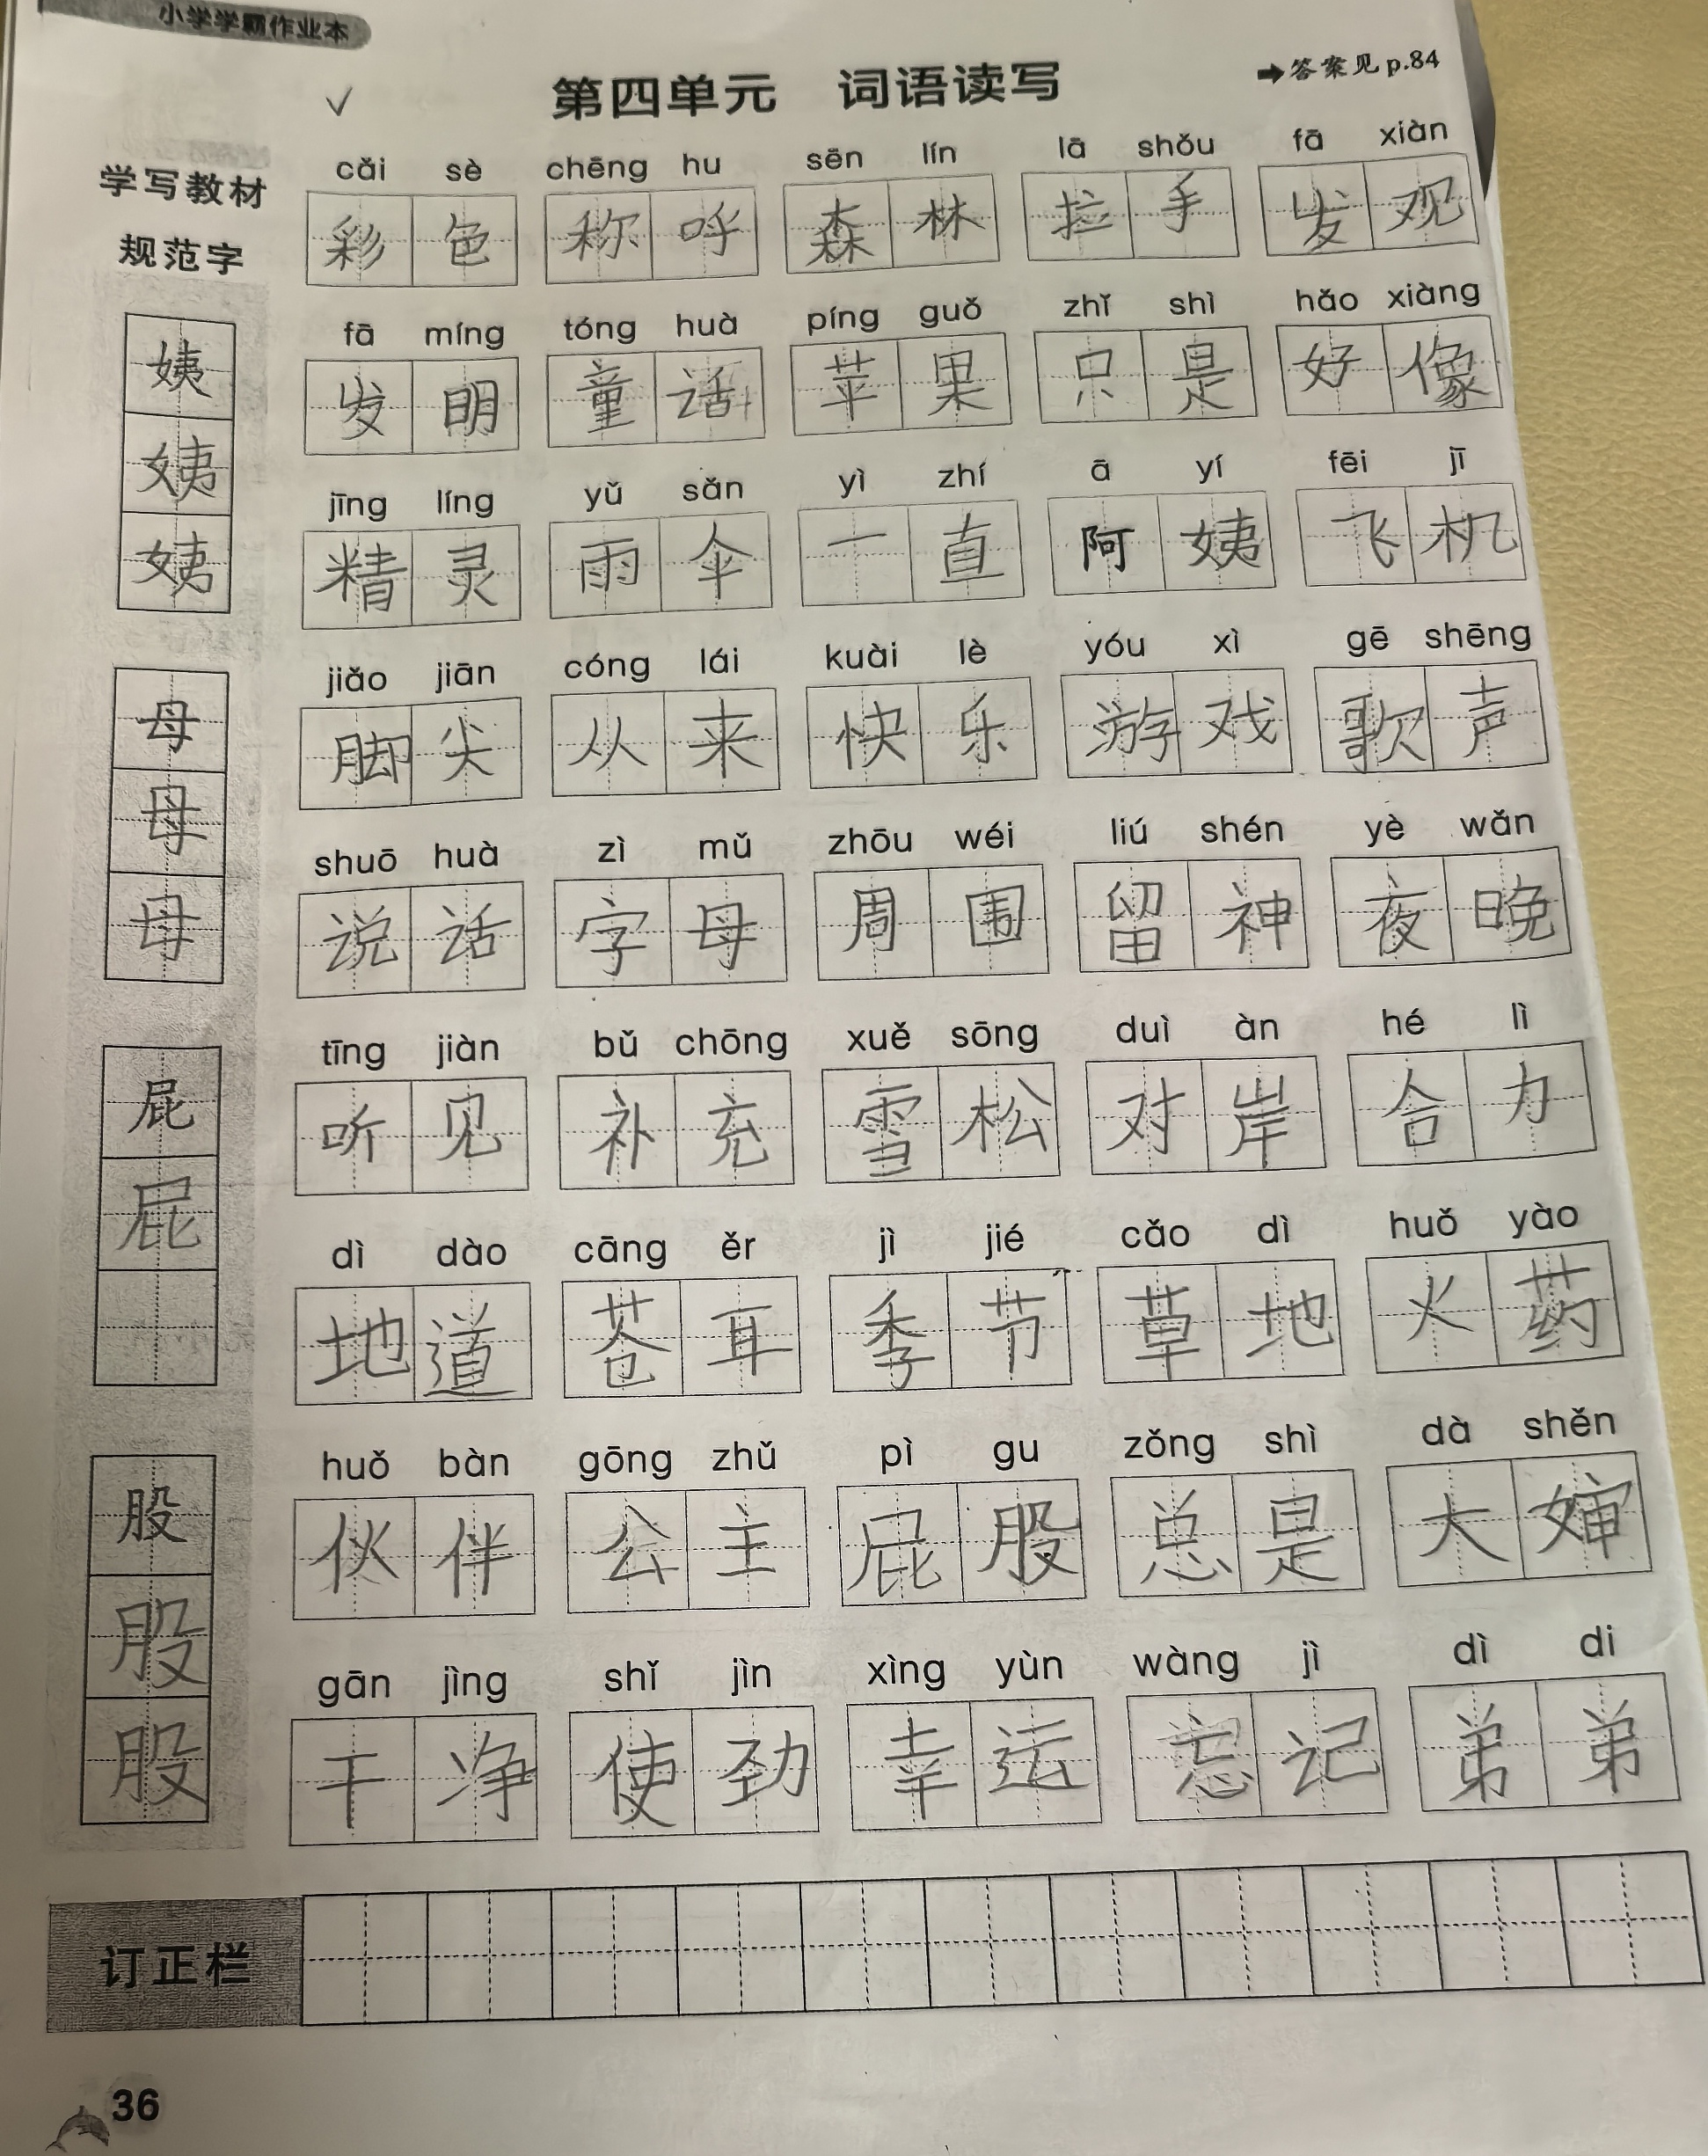 小学学霸作业本
第四单元 词语读写
➡答案见p.84
✓
学写教材
规范字
姨
姨
姨
母
母
母
屁
屁
股
股
股
cǎi sè chēng hu sēn lín lā shǒu fā xiàn
彩色 称呼 森林 拉手 发观
fā míng tóng huà píng guǒ zhǐ shì hǎo xiàng
发明 童话 苹果 只是 好像
jīng líng yǔ sǎn yì zhí ā yí fēi jī
精灵 雨伞 一直 阿姨 飞机
jiǎo jiān cóng lái kuài lè yóu xì gē shēng
脚尖 从来 快乐 游戏 歌声
shuō huà zì mǔ zhōu wéi liú shén yè wǎn
说话 字母 周围 留神 夜晚
tīng jiàn bǔ chōng xuě sōng duì àn hé lì
听见 补充 雪松 对岸 合力
dì dào cāng ěr jì jié cǎo dì huǒ yào
地道 苍耳 季节 草地 火药
huǒ bàn gōng zhǔ pì gu zǒng shì dà shěn
伙伴 公主 屁股 总是 大婶
gān jìng shǐ jìn xìng yùn wàng jì dì di
干净 使劲 幸运 忘记 弟弟
订正栏
36